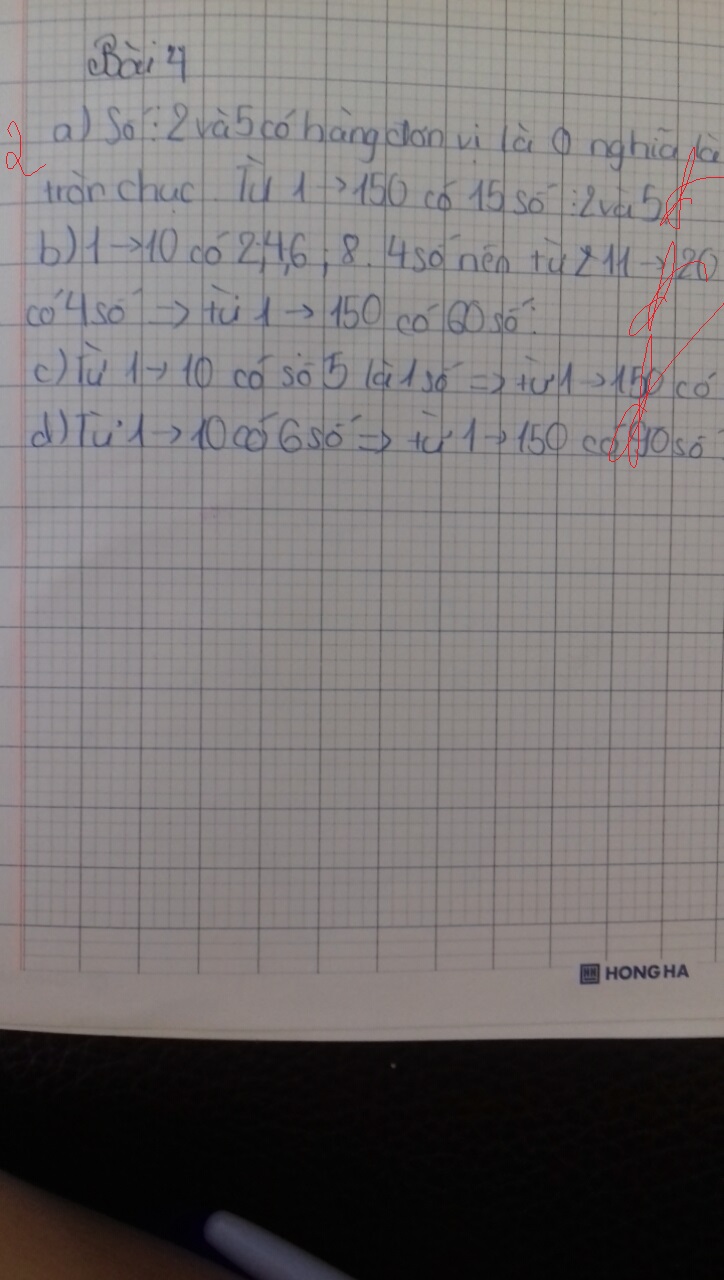 Bài 4
2
a) Số : 2 và 5 có hàng đơn vị là 0 nghĩa là
tròn chục. Từ 1 → 150 có 15 số : 2 và 5
b) 1 → 10 có 2,4,6,8. 4 số nên từ 11 → 20
có 4 số → từ 1 → 150 có 60 số.
c) Từ 1 → 10 có số 5 là 1 số => từ 1 → 150 có
d) Từ 1 → 10 có 6 số => từ 1 → 150 có 90 số
HONG HA